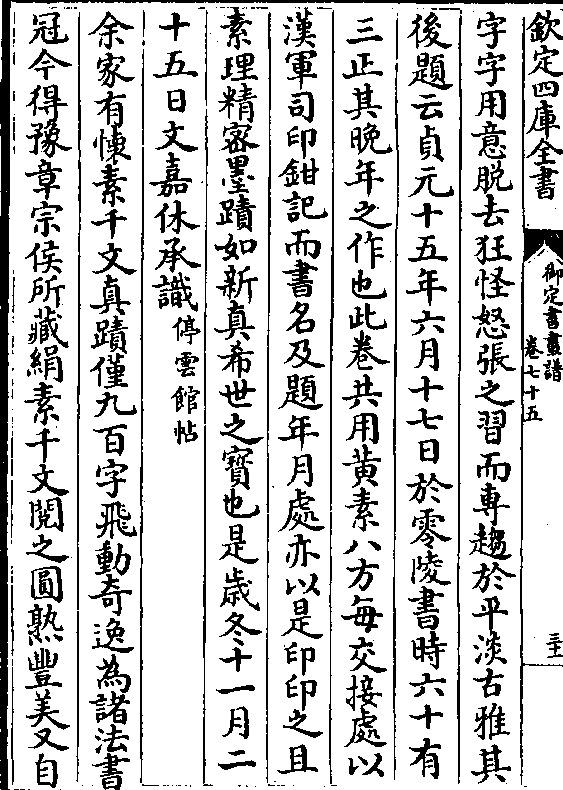 欽定四庫全書
御定書畫譜
卷七十五
三十
字字用意脱去狂怪怒張之習而専趨於平淡古雅其
後題云貞元十五年六月十七日於零陵書時六十有
三正其晚年之作也此卷共用黄素八方每交接處以
漢軍司印鉗記而書名及題年月處亦以是印印之且
素理精宻墨蹟如新真希世之寳也是歳冬十一月二
十五日文嘉休承識停雲館帖
余家有懐素千文真蹟僅九百字飛動奇逸為諸法書
冠今得豫章宗侯所藏絹素千文閲之圓熟豐美又自